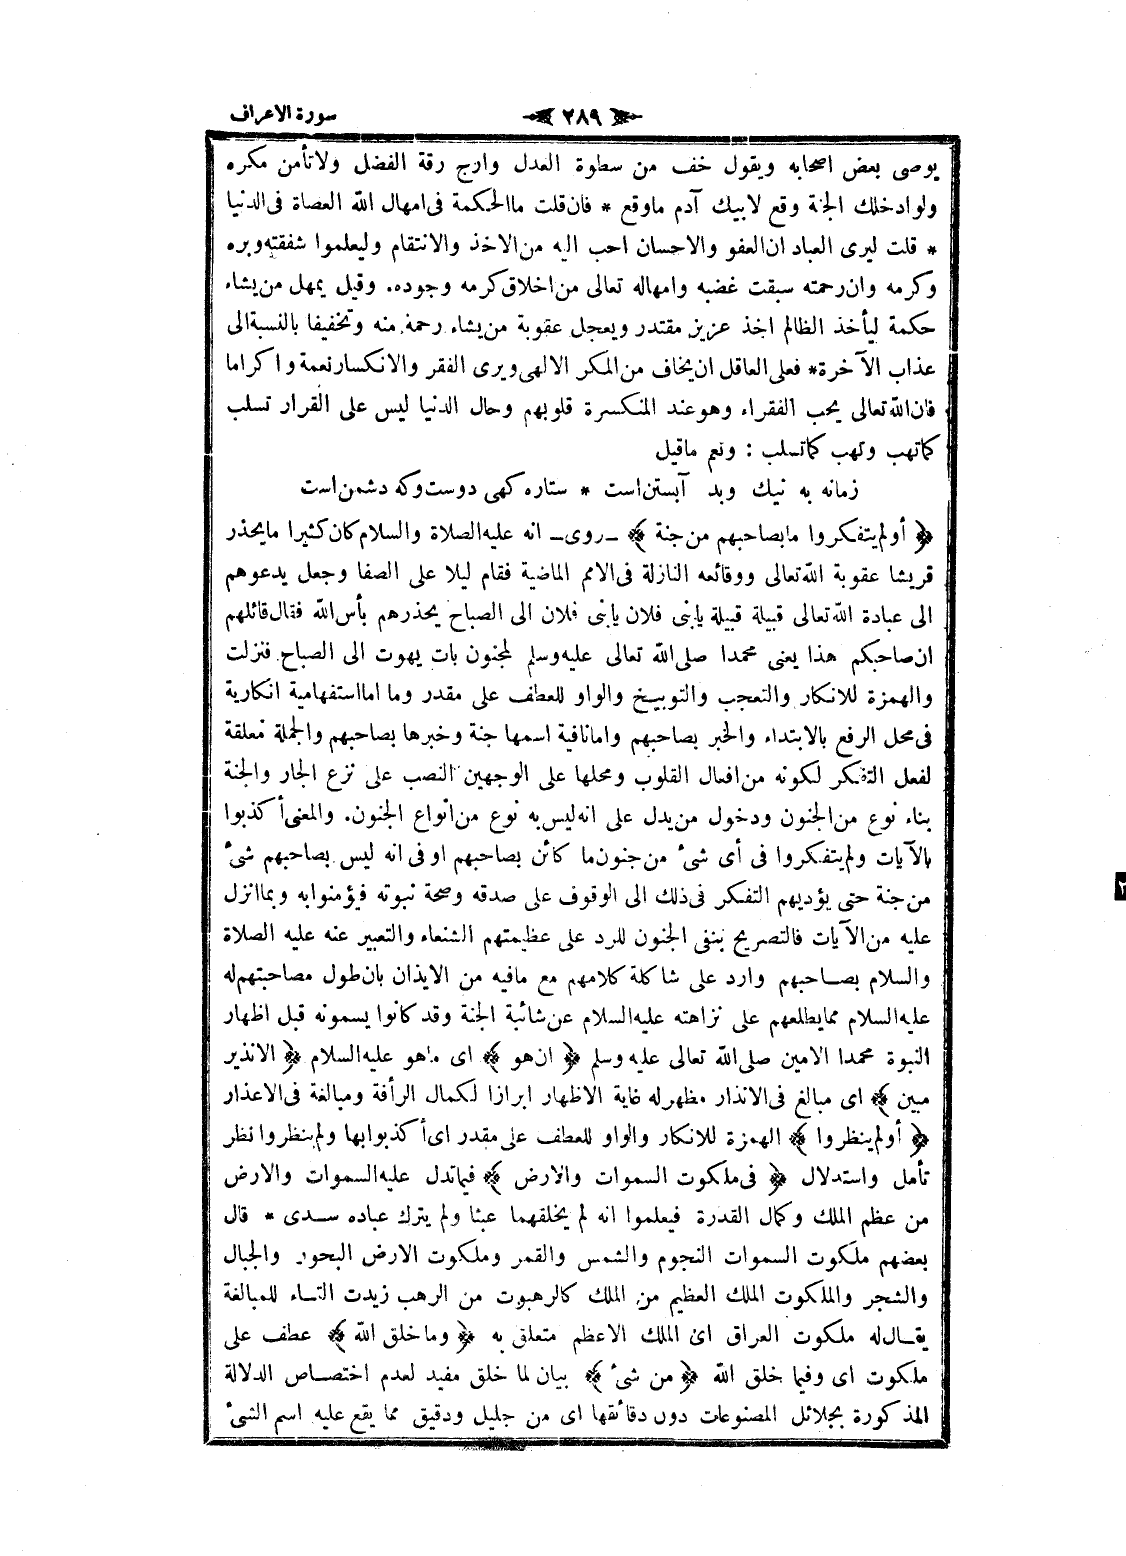 سورة الاعراف ٢٨٩
يوصى بعض اصحابه ويقول خف من سطوة العدل وارج رقة الفضل ولا تأمن مكره
ولو ادخلك الجنة وقع لابيك آدم ماوقع * فان قلت ما الحكمة فى امهال الله العصاة فى الدنيا
* قلت ليرى العباد ان العفو والاحسان احب اليه من الاخذ والانتقام وليعلموا شفقته وبره
وكرمه وان رحمته سبقت غضبه وامهاله تعالى من اخلاق كرمه وجوده. وقيل يمهل من يشاء
حكمة ليأخذ الظالم اخذ عزيز مقتدر ويعجل عقوبة من يشاء رحمة منه وتخفيفا بالنسبة الى
عذاب الآخرة* فعلى العاقل ان يخاف من المكر الالهى ويرى الفقر والانكسار نعمة واكراما
فان الله تعالى يحب الفقراء وهو عند المنكسرة قلوبهم وحال الدنيا ليس على القرار تسلب
كماتهب وتهب كماتسلب : ونعم ماقيل
زمانه به نيك وبد آبستن است * ستاره كهى دوست وكه دشمن است
﴿ أولم يتفكروا مابصاحبهم من جنة ﴾ ـ روى ـ انه عليه الصلاة والسلام كان كثيرا مايحذر
قريشا عقوبة الله تعالى ووقائعه النازلة فى الامم الماضية فقام ليلا على الصفا وجعل يدعوهم
الى عبادة الله تعالى قبيلة قبيلة يابنى فلان يابنى فلان الى الصباح يحذرهم بأس الله فقال قائلهم
ان صاحبكم هذا يعنى محمدا صلى الله تعالى عليه وسلم لمجنون بات يهوت الى الصباح فنزلت
والهمزة للانكار والتعجب والتوبيخ والواو للعطف على مقدر وما اما استفهامية انكارية
فى محل الرفع بالابتداء والخبر بصاحبهم واما نافية اسمها جنة وخبرها بصاحبهم والجملة معلقة
لفعل التفكر لكونه من افعال القلوب ومحلها على الوجهين النصب على نزع الجار والجنة
بناء نوع من الجنون ودخول من يدل على انه ليس به نوع من انواع الجنون. والمعنى أكذبوا
بالآيات ولم يتفكروا فى أى شىء من جنون ما كائن بصاحبهم او فى انه ليس بصاحبهم شىء
من جنة حتى يؤديهم التفكر فى ذلك الى الوقوف على صدقه وصحة نبوته فيؤمنوا به وبما انزل
عليه من الآيات فالتصريح بنفى الجنون للرد على عظيمتهم الشنعاء والتعبير عنه عليه الصلاة
والسلام بصاحبهم وارد على شاكلة كلامهم مع مافيه من الايذان بان طول مصاحبتهم له
عليه السلام مما يطلعهم على نزاهته عليه السلام عن شائبة الجنة وقد كانوا يسمونه قبل اظهار
النبوة محمدا الامين صلى الله تعالى عليه وسلم ﴿ ان هو ﴾ اى ماهو عليه السلام ﴿ الا نذير
مبين ﴾ اى مبالغ فى الانذار مظهر له غاية الاظهار ابرازا لكمال الرأفة ومبالغة فى الاعذار
﴿ أولم ينظروا ﴾ الهمزة للانكار والواو للعطف على مقدر اى أكذبوا بها ولم ينظروا نظر
تأمل واستدلال ﴿ فى ملكوت السموات والارض ﴾ فيما تدل عليه السموات والارض
من عظم الملك وكمال القدرة فيعلموا انه لم يخلقهما عبثا ولم يترك عباده سدى * قال
بعضهم ملكوت السموات النجوم والشمس والقمر وملكوت الارض البحور والجبال
والشجر والملكوت الملك العظيم من الملك كالرهبوت من الرهب زيدت التاء للمبالغة
يقال له ملكوت العراق اى الملك الاعظم متعلق به ﴿ وما خلق الله ﴾ عطف على
ملكوت اى وفيما خلق الله ﴿ من شىء ﴾ بيان لما خلق مفيد لعدم اختصاص الدلالة
المذكورة بجلائل المصنوعات دون دقائقها اى من جليل ودقيق مما يقع عليه اسم الشىء